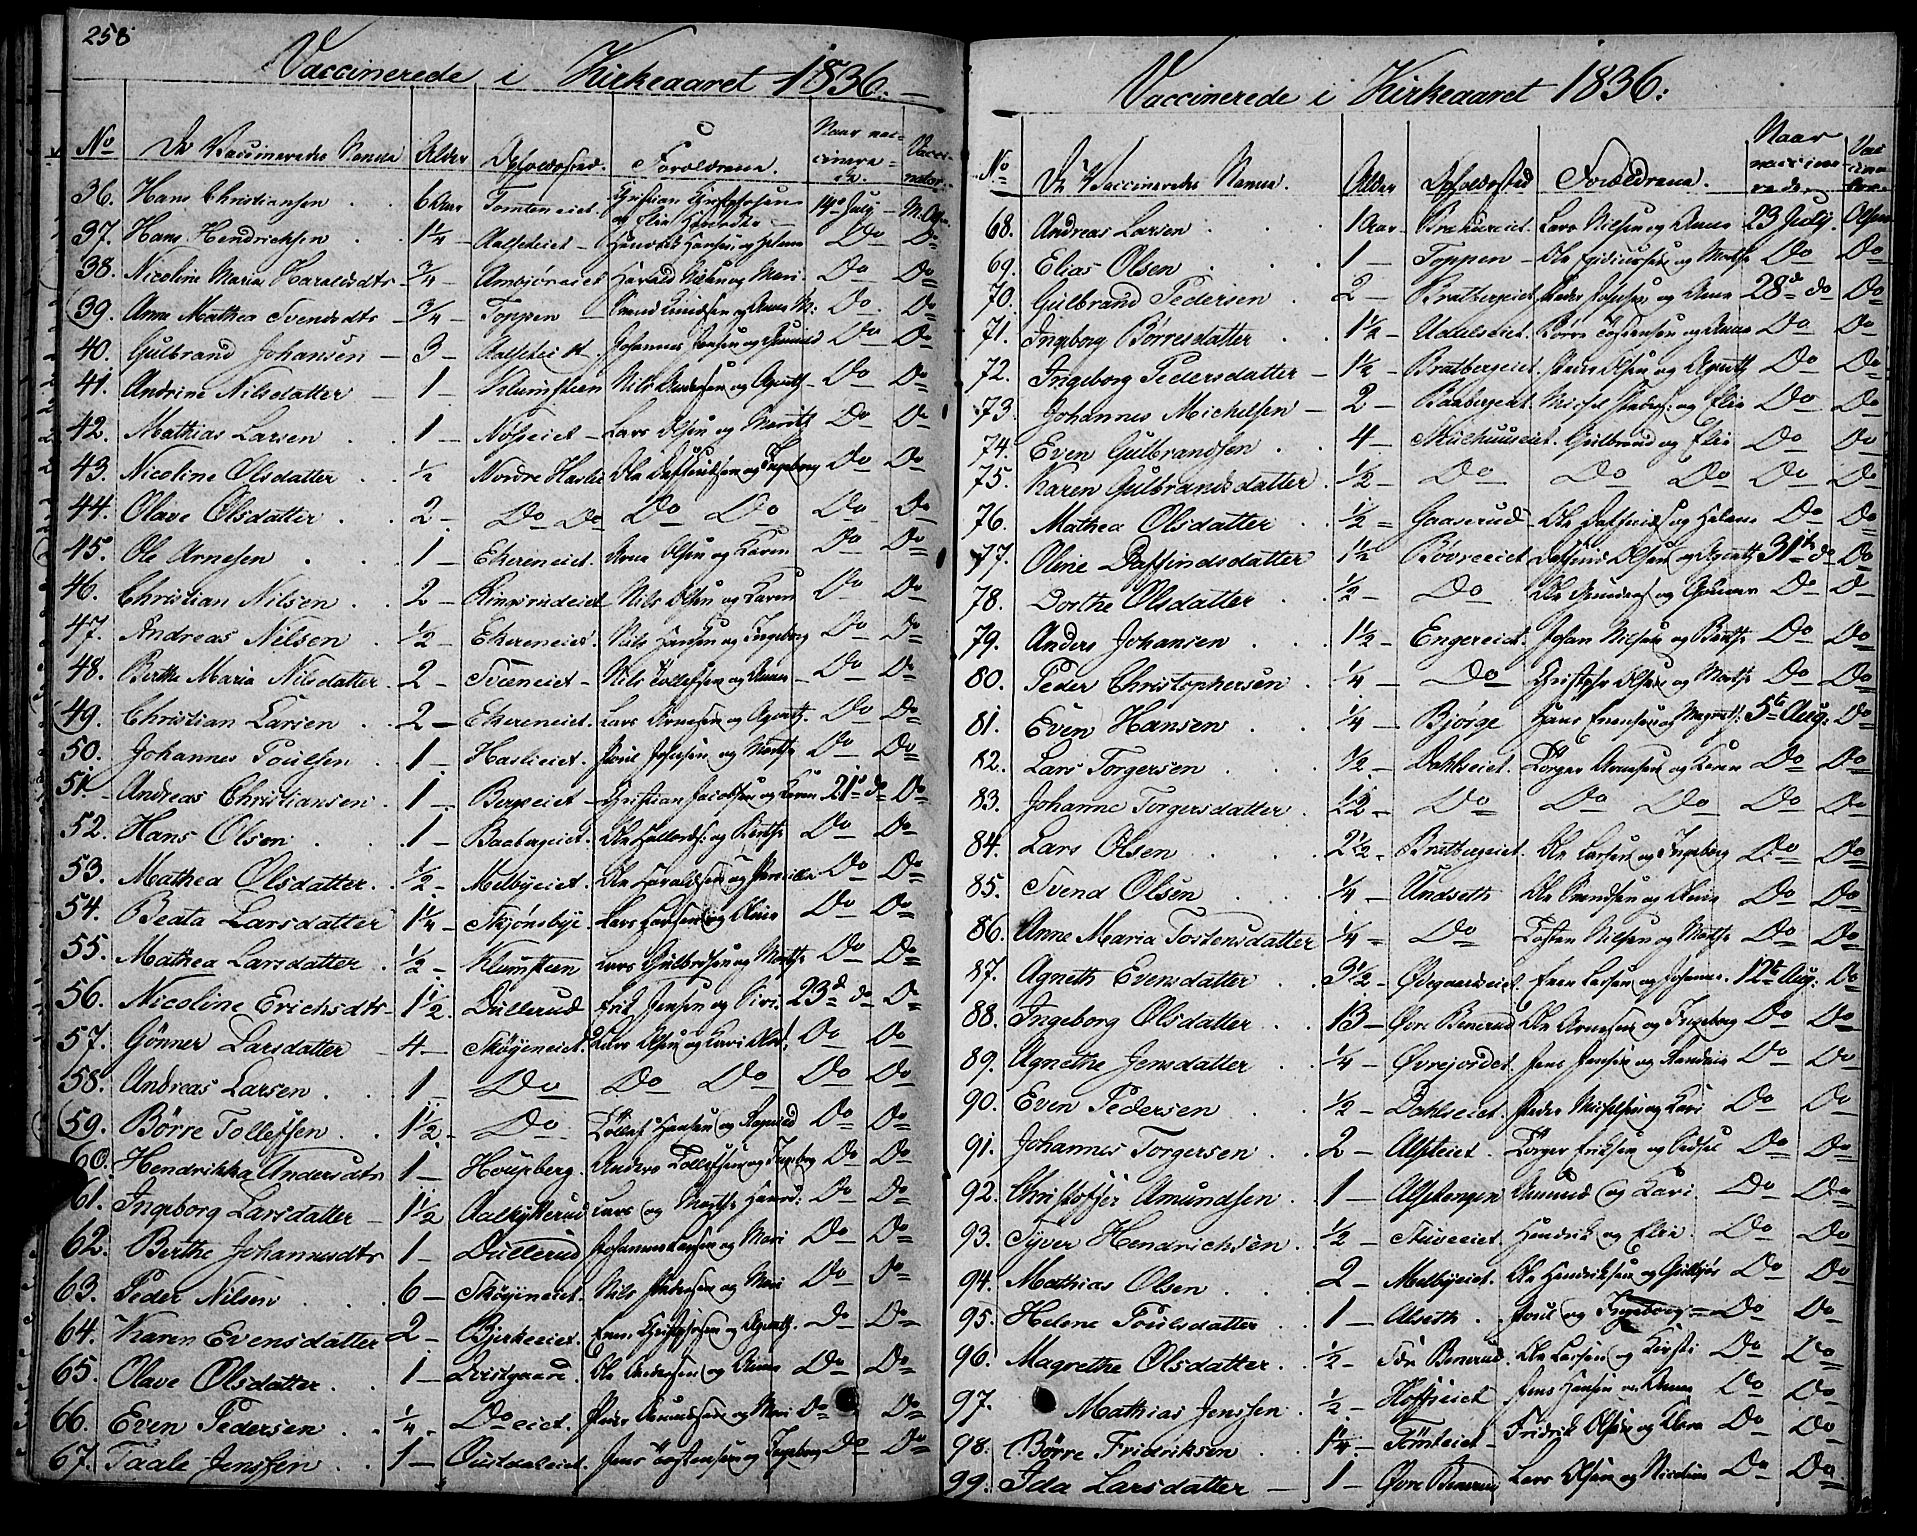 258
Vaccinerede i Kirkeaaret 1836.
No De Vaccineredes Navne Alder Opholdssted Forældrene Naar vaccinerede Vaccinator
36. Hans Christiansen 6 Aar Tomteneiet Christian 14de July
37. Hans Hendrichsen 1¼ Aalseteiet Hendrik Hansen og Do Do
38. Nicoline Maria Haraldsdtr ¾ Harald Nilsen og Mari Do Do
39. Anne Mathea Svendsdtr ¾ Toppen Svend Knudsen og Anne M: Do Do
40. Gulbrand Johansen 3 Do Do
41. Andrine Nilsdatter 1 Klumsteen Nils Andersen og Agneth Do Do
42. Mathias Larsen 1 Lars Olsen og Marith Do Do
43. Nicoline Olsdatter ½ Nordre Haslie Ole og Ingeborg Do Do
44. Olave Olsdatter 2 Do Do Do Do Do Do
45. Ole Arnesen 1 Ekereneiet Arne Olsen og Karen Do Do
46. Christian Nilsen 2 Ringsrudeiet Nils Olsen og Karen Do Do
47. Andreas Nilsen ½ Ekereneiet Nils Hansen og Ingeborg Do Do
48. Berthe Maria Nilsdatter 2 Nils Tollefsen og Anne Do Do
49. Christian Larsen 2 Ekereneiet Lars Arnesen og Agneth Do Do
50. Johannes Poulsen 1 Haslieiet Poul Johnsen og Marthe Do Do
51. Andreas Christiansen 1 Bergseiet Christian Jacobsen og Karen 21de do Do
52. Hans Olsen 1 Baabergeiet Ole Hallords: og Berthe Do Do
53. Mathea Olsdatter ½ Melbyeiet Ole Haraldsen og Pernille Do Do
54. Beata Larsdatter 1¼ Skjønsbye Lars Larsen og Do Do
55. Mathea Larsdatter ½ Klumsteen Lars Gulbrdsen og Marthe Do Do
56. Nicoline Erichsdtr 1½ Dullerud Erik Jensen og Siri 23de do Do
57. Gønner Larsdatter 4 Skøyeneiet Lars Olsen og Kari Do Do
58. Andreas Larsen 1 Do Do Do Do Do
59. Børre Tollefsen 1½ Do Tollef Hansen og Ragnild Do Do
60. Hendrikka Andersdtr 1 Houpberg Anders Tollefsen og Ingeborg Do Do
61. Ingeborg Larsdatter 1½ Aalkytterud Lars og Marthe Do Do
62. Berthe Johannesdtr 1 Dullerud Johannes Larsen og Mari Do Do
63. Peder Nilsen 6 Skøyeneiet Nils Pedersen og Mari Do Do
64. Karen Evensdatter 2 Bjerkeeiet Even Christophersen og Agneth Do Do
65. Olave Olsdatter 1 Qvistgaard Ole Andersen og Anne Do Do
66. Even Pedersen ¼ Do eiet Peder Amundsen og Mari Do Do
67. Taale Jenssen 1 Ousdaleiet Jens Torstensen og Ingeborg Do Do
Vaccinerede i Kirkeaaret 1836:
No De Vaccineredes Navne Alder Opholdssted Forældrene Naar vaccinerede Vaccinator
68. Andreas Larsen 1 Aar Lars Nilsen og Anne 23 July Olsen
69. Elias Olsen 1 Toppen Ole og Marthe Do Do
70. Gulbrand Pedersen 2 Bratbergeiet Peder Johnsen og Anne 28de do Do
71. Ingeborg Børresdatter 1½ Børre Torstensen og Anne Do Do
72. Ingeborg Pedersdatter 1½ Bratbergeiet Peder Olsen og Agneth Do Do
73. Johannes Michelsen 2 Baabergeiet Michel Peders: og Elie Do Do
74. Even Gulbrandsen 4 Gulbrand og Elie Do Do
75. Karen Gulbrandsdatter ½ Do Do Do Do Do
76. Mathea Olsdatter ½ Gaaserud Ole Daffinds: og Helene Do Do
77. Oline Daffindsdatter 1½ Bøvreeiet Daffind Olsen og Agneth 31te do Do
78. Dorthe Olsdatter ½ Do Ole Amundsen og Do Do
79. Anders Johansen 1½ Engereiet Johan Nilsen og Berthe Do Do
80. Peder Christophersen ¼ Do Christopher Olsen og Marthe Do Do
81. Even Hansen ¼ Bjørge Hans Evensen og Magreth: 5te Aug: Do
82. Lars Torgersen ½ Dahlseiet Torger Arnesen og Karen Do Do
83. Johanne Torgersdatter ½ Do Do Do Do Do
84. Lars Olsen 2½ Bratbergeiet Ole Larsen og Ingeborg Do Do
85. Svend Olsen ¼ Undseth Ole Svendsen og Do Do
86. Anne Maria Tostensdatter ¼ Do Tosten Nilsen og Marthe Do Do
87. Agneth Evensdatter 3½ Ødegaardseiet Even Larsen og Johanne 12te Aug: Do
88. Ingeborg Olsdatter 13 Øvre Benerud Ole Arnesen og Ingeborg Do Do
89. Agnethe Jensdatter ¼ Øvrejordet Jens Jensen og Do Do
90. Even Pedersen ½ Dahlseiet Peder Michelsen og Kari Do Do
91. Johannes Torgersen 2 Alfsteiet Torger Eriksen og Sidsel Do Do
92. Christopher Amundsen 1 Alfstengen Amund og Kari Do Do
93. Syver Hendrichsen ½ Stuveeiet Hendrik og Elie Do Do
94. Mathias Olsen 2 Melbyeiet Ole Hendriksen og Gulbjør Do Do
95. Helene Poulsdatter 1 Alseth Poul og Ingeborg Do Do
96. Magrethe Olsdatter ½ Søe Benerud Ole Larsen og Kirsti Do Do
97. Mathias Jenssen ½ Hoffseiet Jens Hansen og Anne Do Do
98. Børre Fridriksen 1¼ Tømteiet Fridrik Olsen og Do Do
99. Ida Larsdatter 1 Øvre Benerud Lars Olsen og Nicoline Do Do